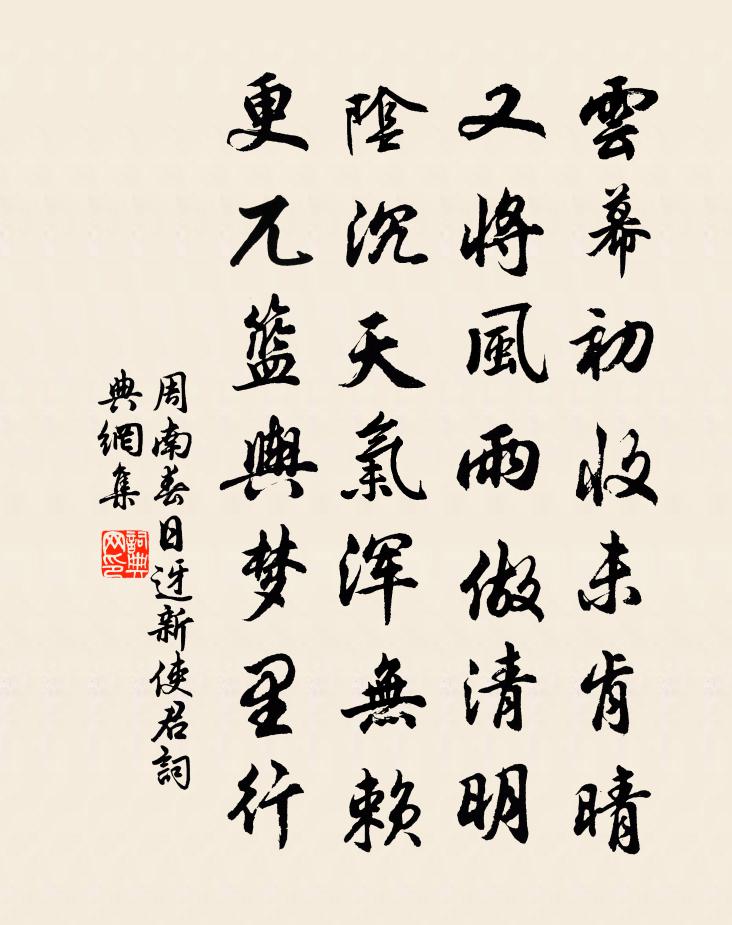 雲幕初收未肯晴
又將風雨做清明
陰沉天氣渾無賴
更兀籃輿梦里行
周南春日迓新使君詞
典網集
詞典
网印